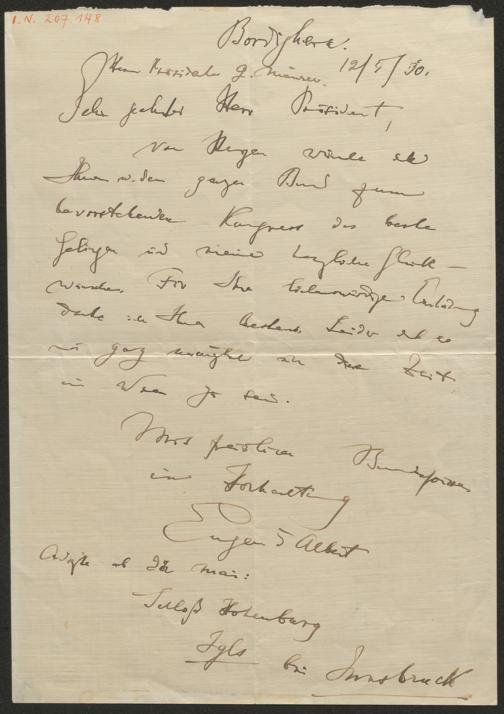 I.N. 207.148
Bordighera.
12/5/30.
Herrn Präsidenten G.
Sehr geehrter Herr Präsident,
von Herzen wünsche ich
Ihnen u. dem ganzen Bund zum
bevorstehenden Kongress das beste
Gelingen und meine herzlichen Glück-
wünsche. Für Ihre liebenswürdige Einladung
danke ich Ihnen bestens. Leider ist es
mir ganz unmöglich in dieser Zeit
in Wien zu sein.
Mit
in Hochachtung
Eugen d'Albert
Adresse ab Mai:
Schloß Hohenburg
Igls bei Innsbruck